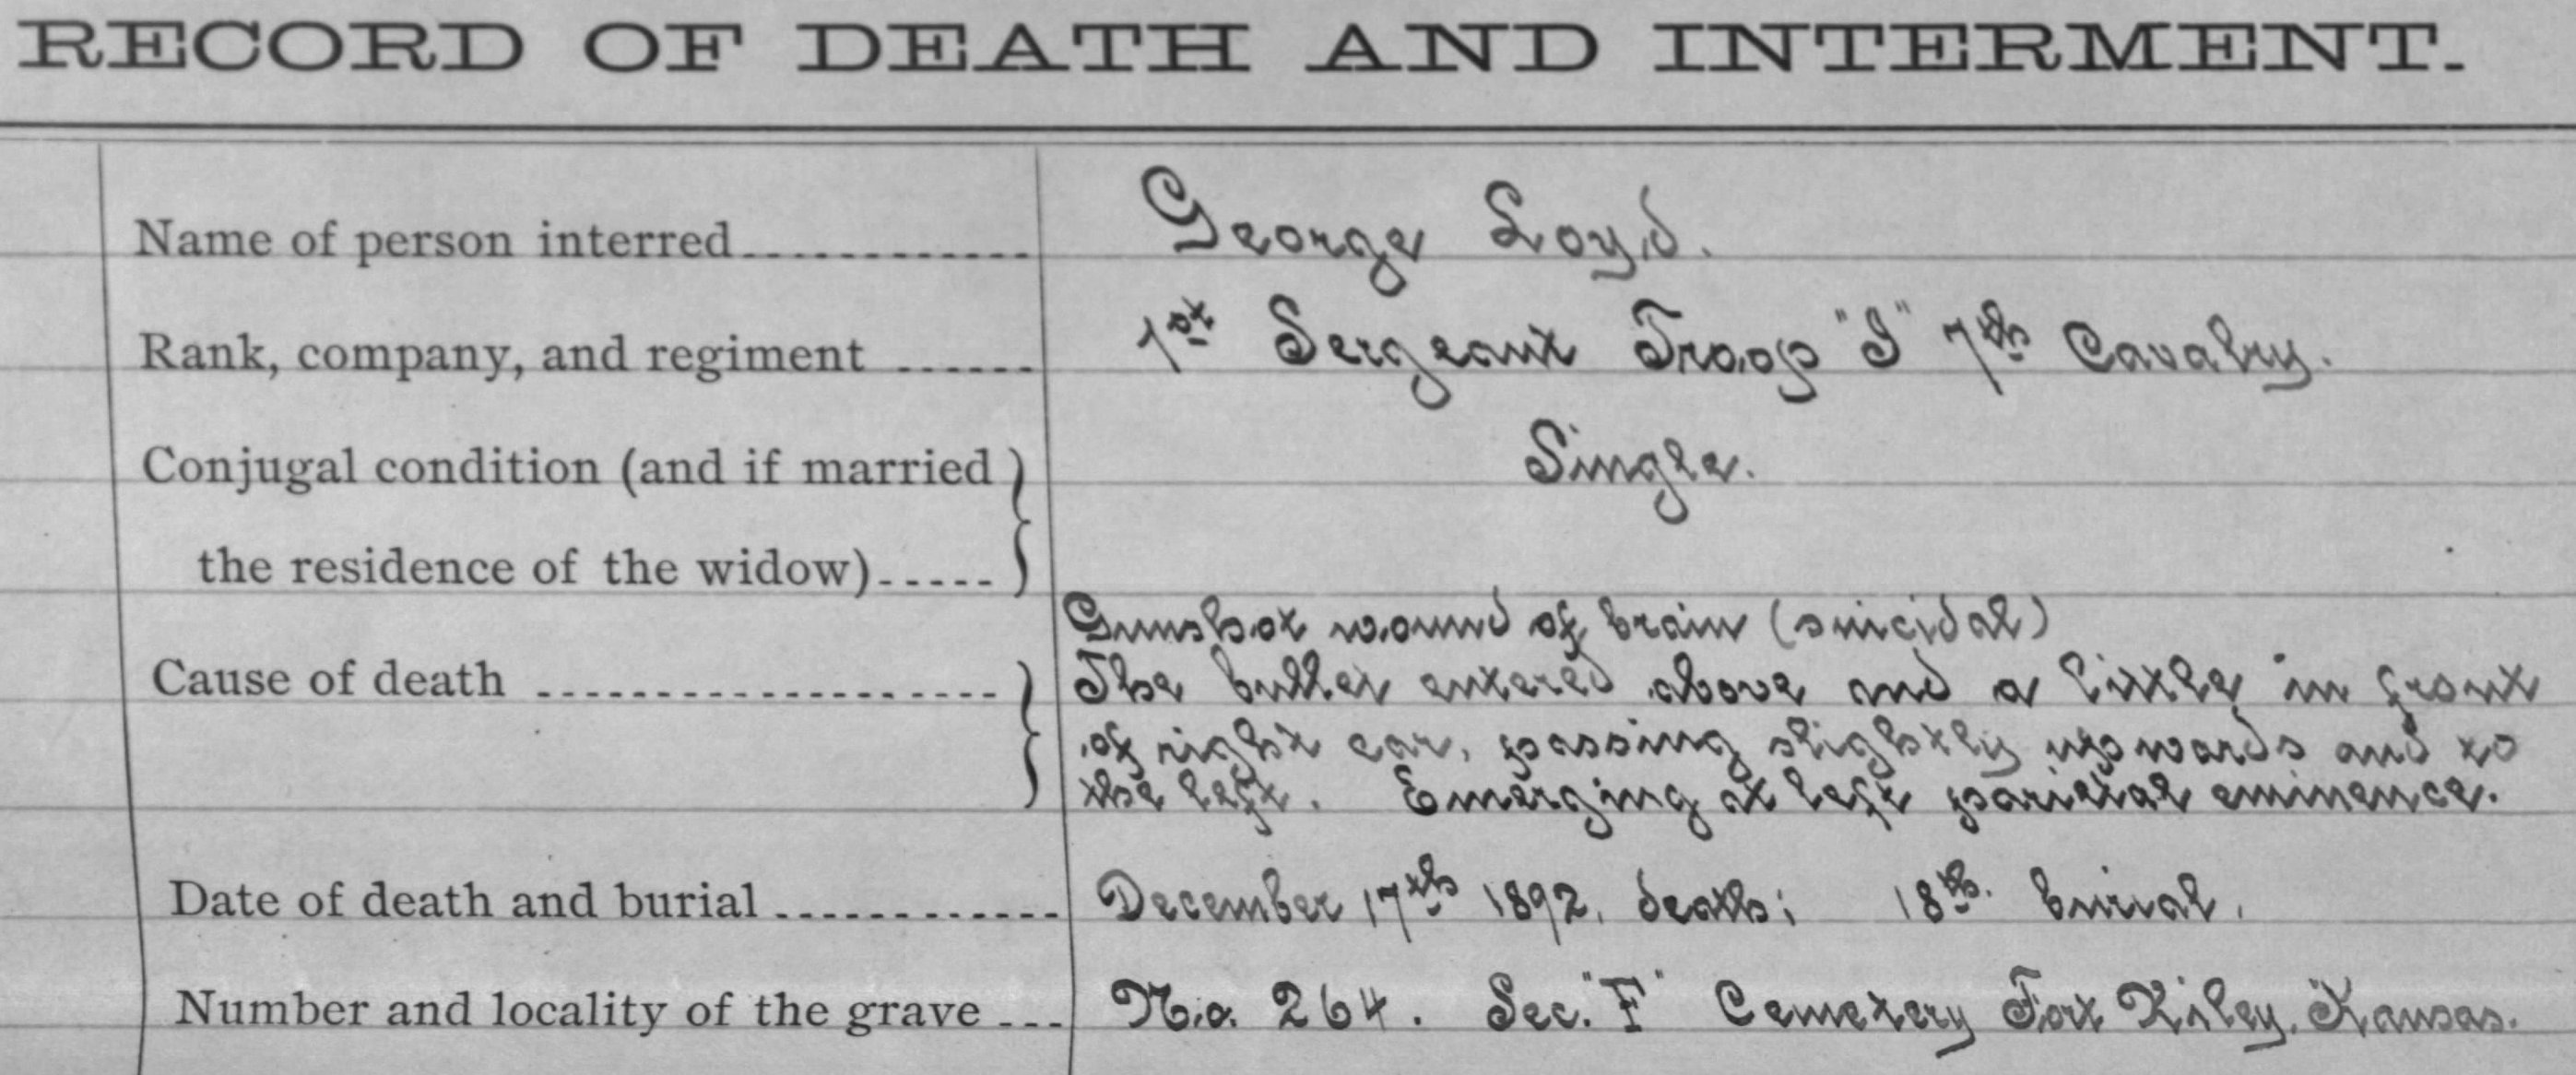 RECORD OF DEATH AND INTERMENT.
Name of person interred............ George Loyd.
Rank, company, and regiment ...... 1st Sergeant Troop "I" 7th Cavalry.
Conjugal condition (and if married } Single.
the residence of the widow)..... }
Gunshot wound of brain (suicidal)
Cause of death .................... } The bullet entered above and a little in front
of right ear, passing slightly upwards and to
the left. Emerging at left parietal eminence.
Date of death and burial ............ December 17th 1892. death; 18th. burial.
Number and locality of the grave ... No. 264. Sec. "F" Cemetery Fort Riley, Kansas.